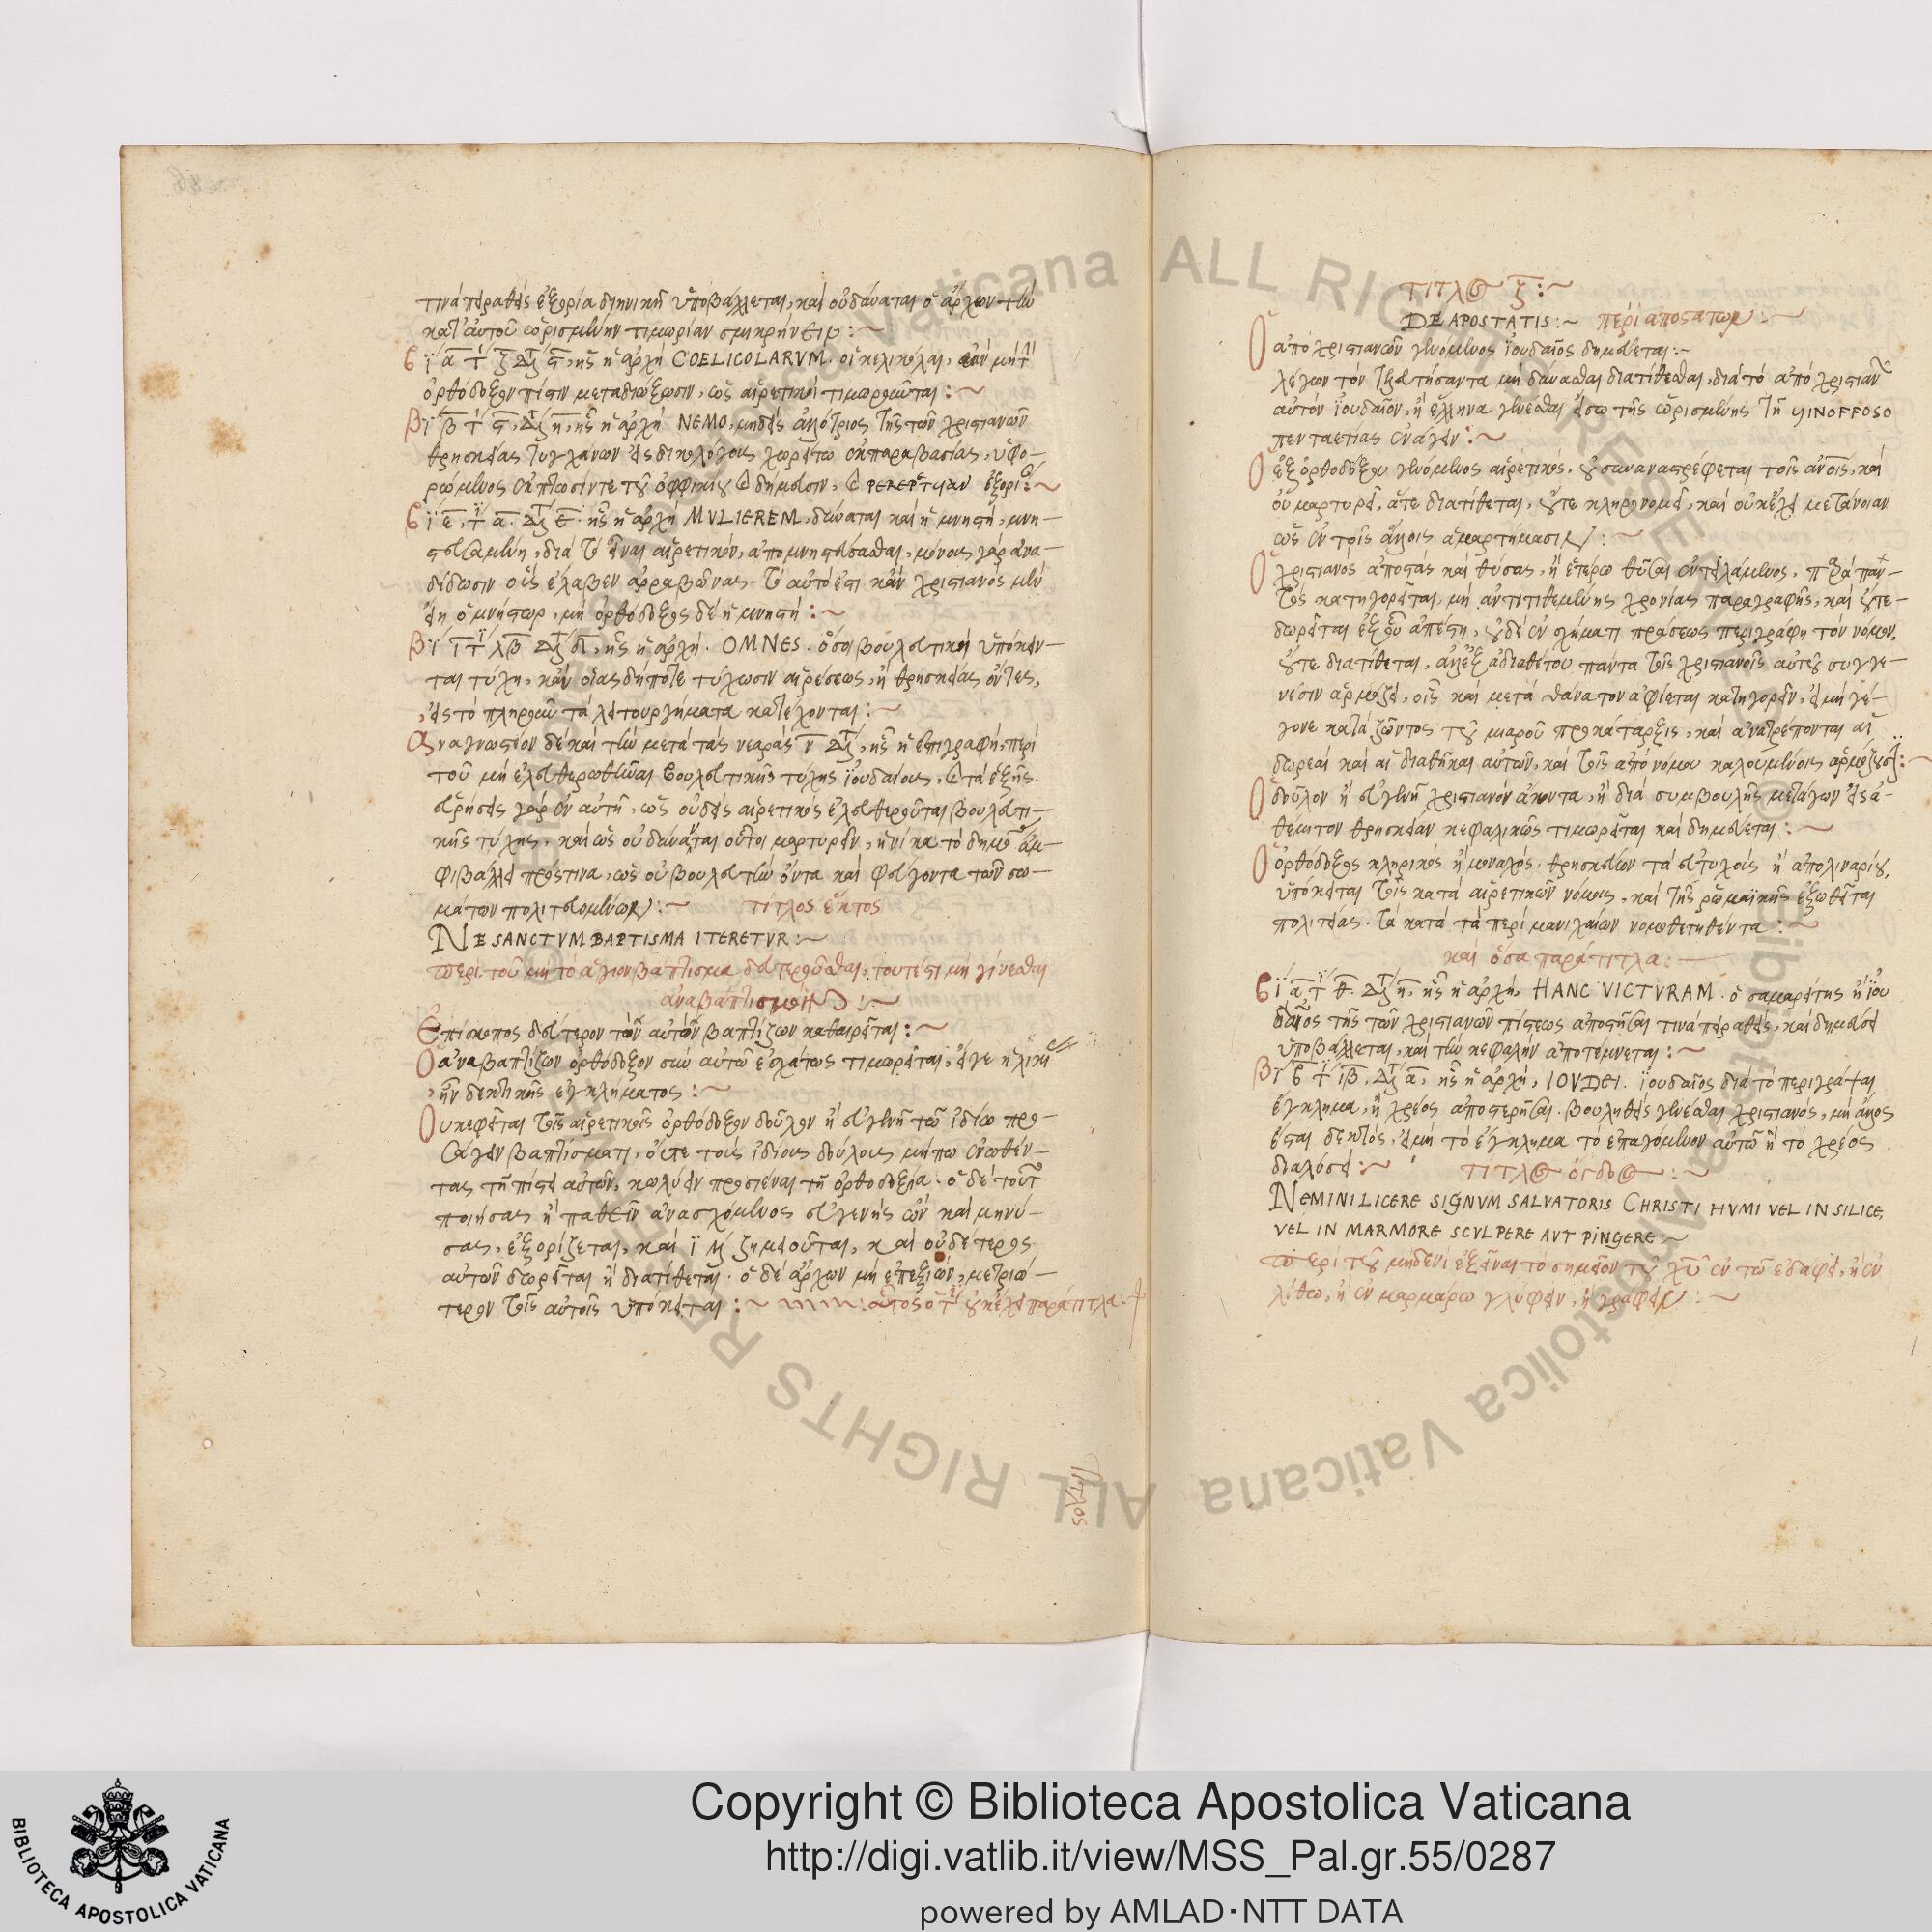 τινὰ πειραθεὶς ἐξορία διηνεκῆ ὑποβάλλεται, καὶ οὐ δύναται ὁ ἄρχων τὴν
κατ' αὐτοῦ ὡρισμένην τιμωρίαν σμικρήνειν :~
COELICOLARVM. οἱ κελικόλαι, ἐὰν μὴ
ὀρθόδοξον πίστιν μεταδιώξωσιν, ὡς αἱρετικοὶ τιμωροῦνται :~
ἧς ἡ ἀρχή NEMO, μηδεὶς ἀλλότριος τῆς τῶν χριστιανῶν
θρησκείας τυγχάνων
ρώμενος
ἧς ἡ ἀρχή MVLIEREM, δύναται καὶ ἡ μνηστή, μνη-
στευσαμένη, διὰ τὸ εἶναι αἱρετικόν, ἀπομνηστεύσασθαι, μόνους γὰρ ἀνα-
δίδωσιν οὓς ἔλαβεν ἀρραβῶνας. τὸ αὐτό ἐστι κἂν χριστιανὸς μὲν
εἴη ὁ μνήστωρ, μὴ ὀρθόδοξος δὲ ἡ μνηστή :~
ἧς ἡ ἀρχή. OMNES. ὅσοι βουλευτικῆ ὑπόκειν-
ται τύχη, κἂν οἵας δήποτε τύχωσιν αἱρέσεως, ἢ θρησκείας ὄντες,
εἰς τὸ πληροῦν τὰ λειτουργήματα κατέχονται :~
Ἀναγνωστέον δὲ καὶ τὴν μετὰ τὰς νεαρὰς ἧς ἡ ἐπιγραφή, περὶ
τοῦ μὴ ἐλευθερωθῆναι βουλευτικῆς τύχης ἰουδαίους, καὶ τὰ ἑξῆς.
εὑρήσεις γὰρ ἐν αὐτῆ, ὡς οὐδεὶς αἱρετικὸς ἐλευθεροῦται βουλευτι-
κῆς τύχης, καὶ ὡς οὐ δύνανται οὗτοι μαρτυρεῖν, ἡνίκα τὸ δημόσιον ἀμ-
φιβάλλει πρός τινα, ὡς οὐ βουλευτὴν ὄντα καὶ φεύγοντα τῶν σω-
μάτων πολιτευομένων :~ τίτλος ἕκτος
NE SANCTVM BAPTISMA ITERETVR :~
περὶ τοῦ μὴ τὸ ἅγιον βάπτισμα δευτεροῦσθαι, τουτέστι μὴ γίνεσθαι
ἀναβαπτισμόν :~
Ἐπίσκοπος δεύτερον τὸν αὐτὸν βαπτίζων καθαιρεῖται :~
Ὁ ἀναβαπτίζων ὀρθόδοξον σὺν αὐτῶ ἐσχάτως τιμωρεῖται, εἴγε ἡλικίας
ἦν δεκτικῆς ἐγκλήματος :~
Οὐκ ἐφεῖται τοῖς αἱρετικοῖς ὀρθόδοξον δοῦλον ἢ εὐγενῆ τῶ ἰδίω προ-
σάγειν βαπτίσματι, οὔτε τοὺς ἰδίους δούλους μήπω ἑνωθέν-
τας τῆ πίστει αὐτῶν, κωλύειν προσιέναι τῆ ὀρθοδοξία. ὁ δὲ τοῦτο
ποιήσας ἢ παθεῖν ἀνασχόμενος εὐγενὴς ὢν καὶ μηνύ-
σας, ἐξορίζεται, καὶ ζημιοῦται, καὶ οὐδέτερος
αὐτῶν δωρεῖται ἢ διατίθεται. ὁ δὲ ἄρχων μὴ ἐπεξιών, μετριώ-
τερον τοῖς αὐτοῖς ὑπόκειται :~ οὗτος ὁ τί οὐκ ἔχει παράτιτλα :
τίτλος
τίτλος ζ :~
DE APOSTATIS :~ περὶ ἀποστατῶν :~
Ὁ ἀπὸ χριστιανῶν γενόμενος ἰουδαῖος δημεύεται :~
λέγων τὸν τελευτήσαντα μὴ δύνασθαι διατίθεσθαι, διὰ τὸ ἀπὸ χριστιανῶν
αὐτὸν ἰουδαῖον, ἢ ἕλληνα γενέσθαι εἴσω τῆς ὡρισμένης τῆ YINOFFOSO
πενταετίας ἐναγέτω :~
Ὁ ἐξ ὀρθοδόξου γενόμενος αἱρετικός, οὐ συναναστρέφεται τοῖς ἀνοις, καὶ
οὐ μαρτυρεῖ, οὔτε διατίθεται, οὔτε κληρονομεῖ, καὶ οὐκ ἔχει μετάνοιαν
ὡς ἐν τοῖς ἄλλοις ἁμαρτήμασιν :~
Ὁ χριστιανὸς ἀποστὰς καὶ θύσας, ἢ ἑτέρω θῦσαι ἐντειλάμενος, παρὰ παν-
τὸς κατηγορεῖται, μὴ ἀντιτιθεμένης χρονίας παραγραφῆς, καὶ οὔτε
δωρεῖται ἐξ οὗ ἀπέστη, οὐδὲ ἐν σχήματι πράσεως περιγράφη τὸν νόμον,
οὔτε διατίθεται, ἀλλ' ἐξ ἀδιαθέτου πάντα τοῖς χριστιανοῖς αὐτοῦ συγγε-
νέσιν ἁρμόζει, οἷς καὶ μετὰ θάνατον ἀφίεται κατηγορεῖν, εἰ μὴ γέ-
γονε κατὰ ζῶντος τοῦ μιαροῦ προκάταρξις, καὶ ἀνατρέπονται αἱ
δωρεαὶ καὶ αἱ διαθῆκαι αὐτῶν, καὶ τοῖς ἀπὸ νόμου καλουμένοις ἁρμόζουσι :~
Ὁ δοῦλον ἢ εὐγενῆ χριστιανὸν ἄκοντα, ἢ διὰ συμβουλῆς μετάγων εἰς ἀ-
θέμιτον θρησκείαν κεφαλικῶς τιμωρεῖται καὶ δημεύεται :~
Ὁ ὀρθόδοξος κληρικὸς ἢ μοναχός, θρησκεύων τὰ εὐτυχοῦς ἢ ἀπολιναρίου,
ὑπόκειται τοῖς κατὰ αἱρετικῶν νόμοις, καὶ τῆς ῥωμαϊκῆς ἐξωθεῖται
πολιτείας. τὰ κατὰ τὰ περὶ μανιχαίων νομοθετηθέντα :~
καὶ ὅσα παράτιτλα :~
ἧς ἡ ἀρχή, HANC VICTVRAM. ὁ σαμαρείτης ἢ ἰου
δαῖος τῆς τῶν χριστιανῶν πίστεως ἀποστῆσαί τινα πειραθείς, καὶ δημεύσει
ὑποβάλλεται, καὶ τὴν κεφαλὴν ἀποτέμνεται :~
ἧς ἡ ἀρχή, IOVDEI. ἰουδαῖος διὰ τὸ περιγράψαι
ἔγκλημα, ἢ χρέος ἀποστερῆσαι, βουληθεὶς γενέσθαι χριστιανός, μὴ ἄλλως
ἔσται δεκτός, εἰ μὴ τὸ ἔγκλημα τὸ ἐπαγόμενον αὐτῶ ἢ τὸ χρέος
διαλύσει :~ τίτλος ὄγδοος :~
NEMINI LICERE SIGNVM SALVATORIS CHRISTI HVMI VEL IN SILICE,
VEL IN MARMORE SCVLPERE AVT PINGERE :~
περὶ τοῦ μηδενὶ ἐξεῖναι τὸ σημεῖον τοῦ χῦ ἐν τῶ ἐδάφει, ἢ ἐν
λίθω, ἢ ἐν μαρμάρω γλύφειν, ἢ γράφειν :~
Copyright © Biblioteca Apostolica Vaticana
http://digi.vatlib.it/view/MSS_Pal.gr.55/0287
powered by AMLAD·NTT DATA
BIBLIOTECA APOSTOLICA VATICANA